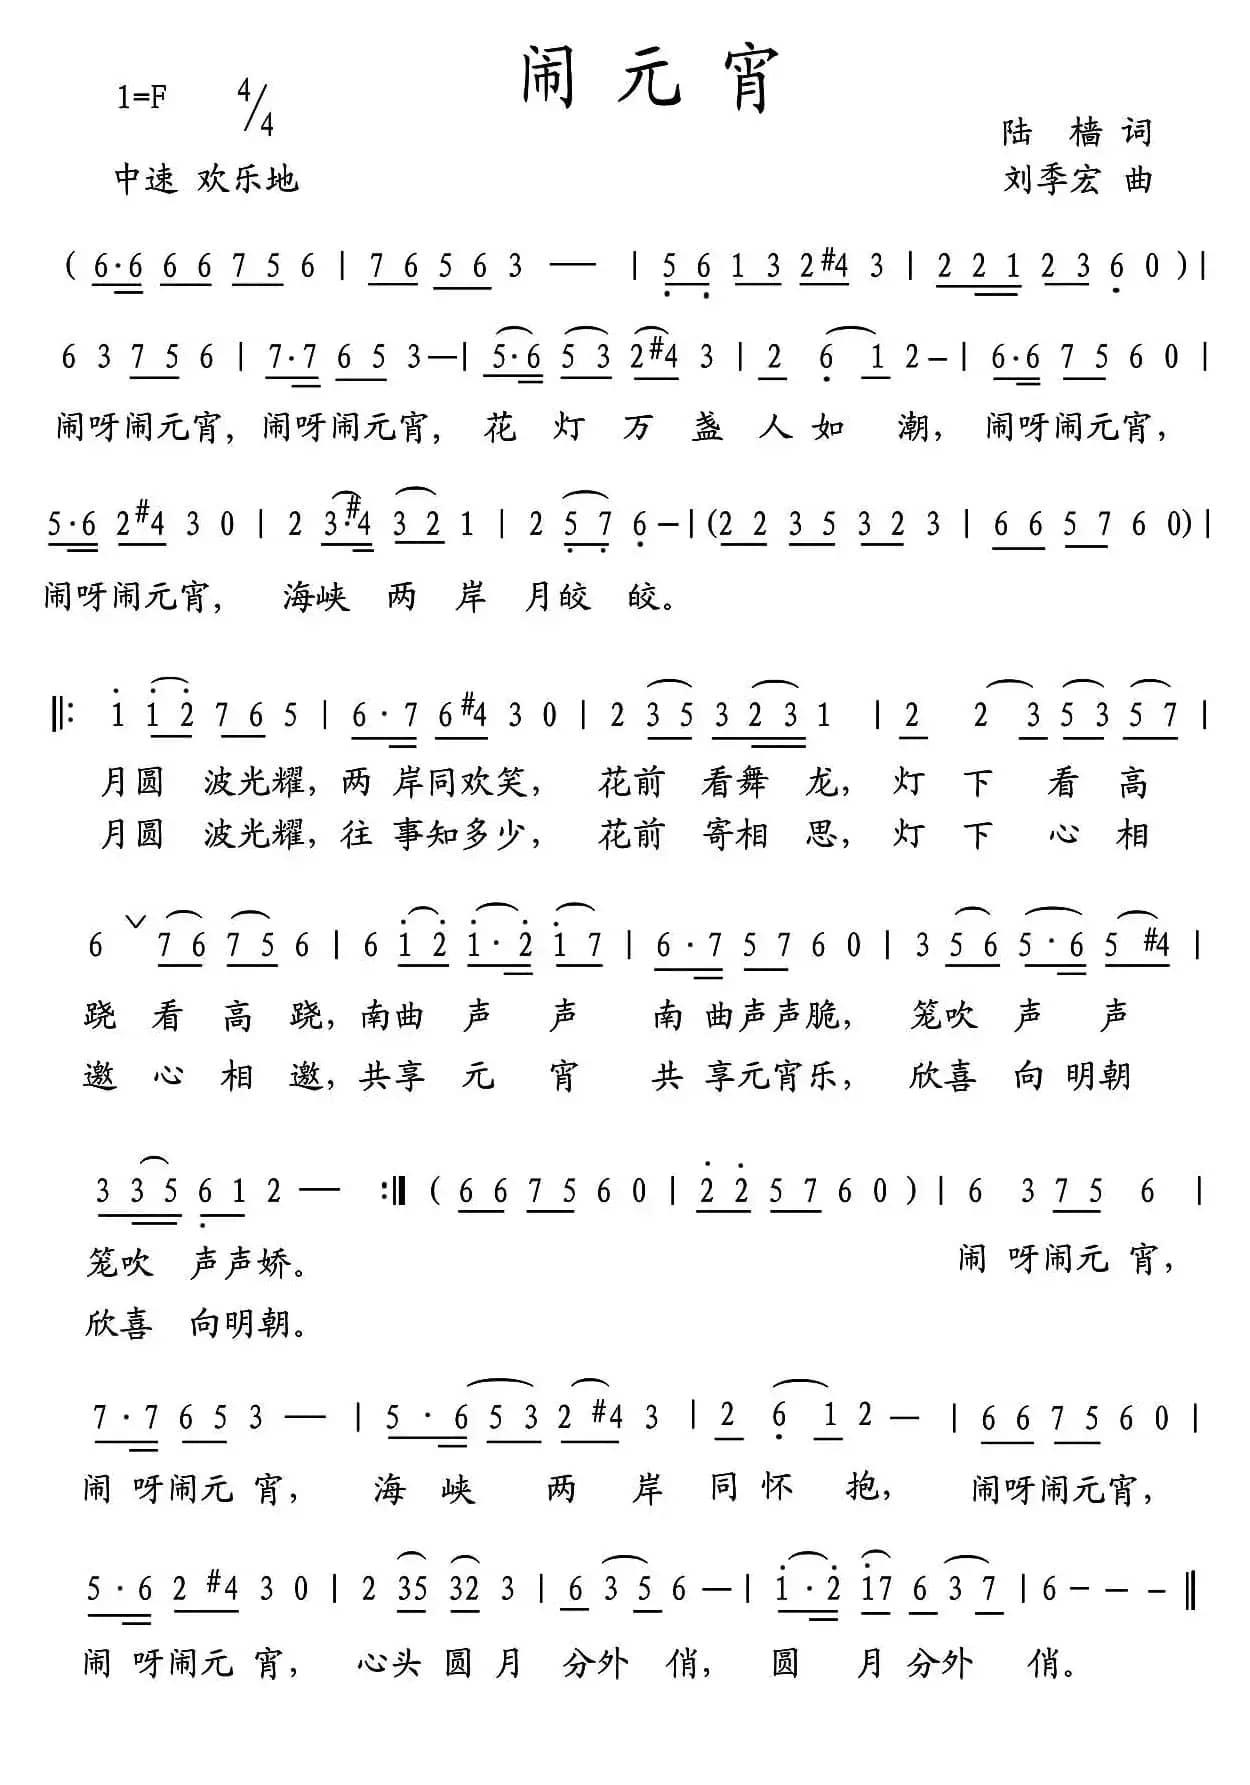 闹元宵
1=F 4/4
陆 樯 词
中速 欢乐地
刘季宏 曲
( 6·6 6 6 7 5 6 | 7 6 5 6 3 — | 5 6 1 3 2 #4 3 | 2 2 1 2 3 6 0 ) |
6 3 7 5 6 | 7·7 6 5 3 — | 5·6 5 3 2 #4 3 | 2 6 1 2 – | 6·6 7 5 6 0 |
闹呀闹元宵, 闹呀闹元宵, 花 灯 万 盏 人 如 潮, 闹呀闹元宵,
5·6 2 #4 3 0 | 2 3·#4 3 2 1 | 2 5 7 6 – | (2 2 3 5 3 2 3 | 6 6 5 7 6 0) |
闹呀闹元宵, 海峡 两 岸 月皎 皎。
‖: 1 1 2 7 6 5 | 6·7 6 #4 3 0 | 2 3 5 3 2 3 1 | 2 2 3 5 3 5 7 |
月圆 波光耀, 两 岸同欢笑, 花前 看舞 龙, 灯 下 看 高
月圆 波光耀, 往 事知多少, 花前 寄相 思, 灯 下 心 相
6 ∨ 7 6 7 5 6 | 6 1 2 1·2 1 7 | 6·7 5 7 6 0 | 3 5 6 5·6 5 #4 |
跷 看 高 跷, 南曲 声 声 南 曲声声脆, 笼吹 声 声
邀 心 相 邀, 共享 元 宵 共 享元宵乐, 欣喜 向 明朝
3 3 5 6 1 2 — :‖ ( 6 6 7 5 6 0 | 2 2 5 7 6 0 ) | 6 3 7 5 6 |
笼吹 声声娇。 闹 呀闹元 宵,
欣喜 向明朝。
7·7 6 5 3 — | 5·6 5 3 2 #4 3 | 2 6 1 2 — | 6 6 7 5 6 0 |
闹 呀闹元 宵, 海 峡 两 岸 同 怀 抱, 闹呀闹元宵,
5·6 2 #4 3 0 | 2 35 32 3 | 6 3 5 6 — | 1·2 17 6 3 7 | 6 – – – ‖
闹 呀闹元 宵, 心头 圆 月 分外 俏, 圆 月 分外 俏。